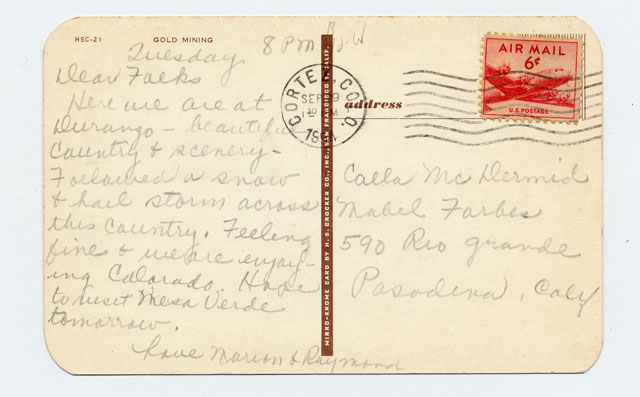 HSC-21 GOLD MINING
Tuesday 8 PM
Dear Folks
Here we are at
Durango - beautiful
Country & scenery -
Followed a snow
& hail storm across
this country. Feeling
fine & we are enjoy-
ing Colorado. Hope
to visit Mesa Verde
tomorrow.
Love Marion & Raymond
MIRRO-KROME CARD BY H. S. CROCKER CO., INC., SAN FRANCISCO, CALIF.
CORTEZ, COLO.
SEP
AIR MAIL
6¢
U.S. POSTAGE
address
Calla McDermid
Mabel Forbes
590 Rio Grande
Pasadena, Caly